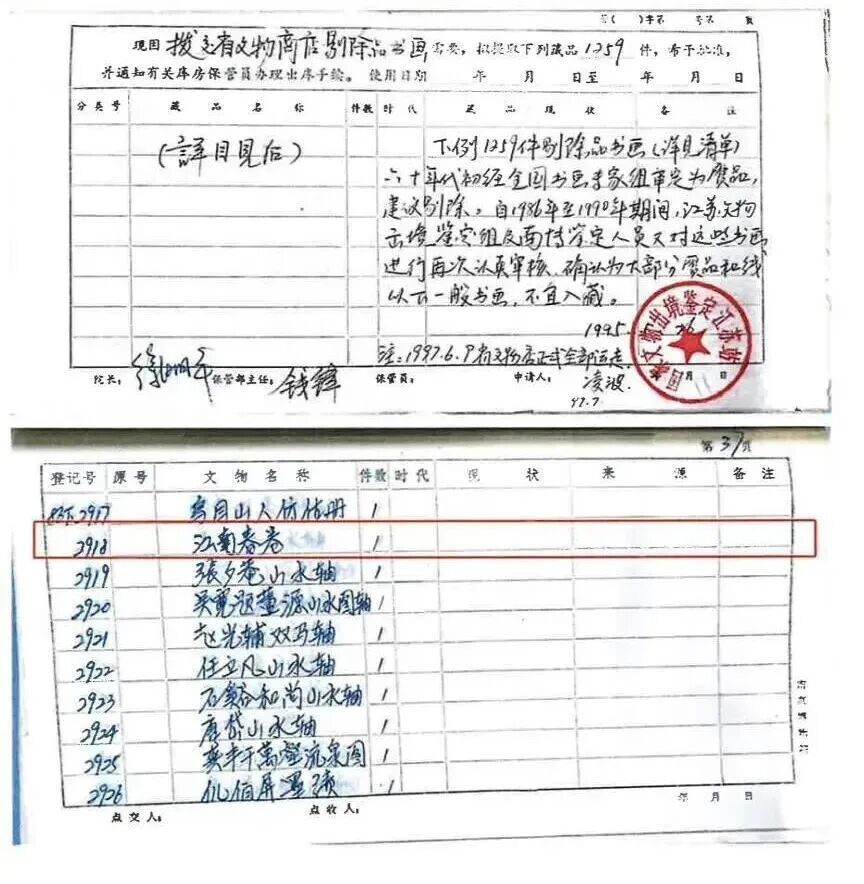 第（ ）字第 号第 页
现因 拨交省文物商店剔除品书画 需要，拟提取下列藏品 1259 件，希予批准，
并通知有关库房保管员办理出库手续。使用日期 年 月 日至 年 月 日
分类号 藏品名称 件数 时代 藏品现状 备注
（詳目見后）
下例1259件剔除品书画（详見清单）
六十年代初经全国书画专家组审定为贋品，
建议剔除。自1986年至1990年期间，江苏文物
出境鉴定组及南博鉴定人员又对这些书画
进行再次认真审核，确认为大部分贋品和线
以下一般书画，不宜入藏。
1995.
国家文物出境鉴定江苏站
注：1997.6.9省文物店正式全部运走
院长： 徐湖平 保管部主任： 钱锋 保管员： 申请人： 凌波 月 日
97.7.
第 37 页
登记号 原号 文物名称 件数 时代 现状 来源 备注
2917 乌目山人仿古册 1
2918 江南春卷 1
2919 張夕菴山水轴 1
2920 吴寬题董源山水图轴 1
2921 赵光辅双马轴 1
2922 任立凡山水轴 1
2923 石谿和尚山水轴 1
2924 唐岱山水轴 1
2925 奚丰千萬壑流泉图 1
2926 仉伯屏墨 1
点交人： 点收人： 年 月 日